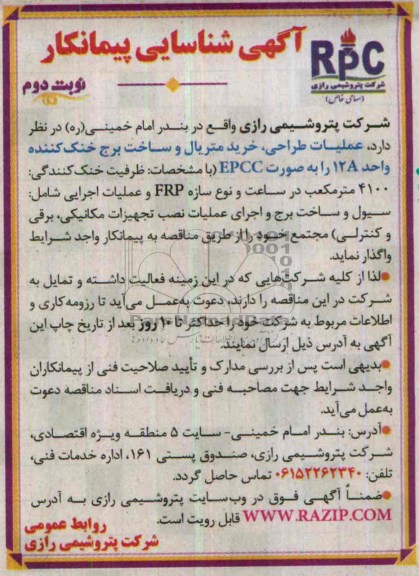 آگهی شناسایی پیمانکار
RPC
شرکت پتروشیمی رازی
(سهامی خاص)
نوبت دوم
شرکت پتروشیمی رازی واقع در بندر امام خمینی(ره) در نظر
دارد، عملیات طراحی، خرید متریال و ساخت برج خنک‌کننده
واحد ۱۲A را به صورت EPCC (با مشخصات: ظرفیت خنک‌کنندگی:
۴۱۰۰ مترمکعب در ساعت و نوع سازه FRP و عملیات اجرایی شامل:
سیول و ساخت برج و اجرای عملیات نصب تجهیزات مکانیکی، برقی
و کنترلی) مجتمع خود را از طریق مناقصه به پیمانکار واجد شرایط
واگذار نماید.
●لذا از کلیه شرکت‌هایی که در این زمینه فعالیت داشته و تمایل به
شرکت در این مناقصه را دارند، دعوت به‌عمل می‌آید تا رزومه کاری و
اطلاعات مربوط به شرکت خود را حداکثر تا ۱۰ روز بعد از تاریخ چاپ این
آگهی به آدرس ذیل ارسال نمایند.
●بدیهی است پس از بررسی مدارک و تأیید صلاحیت فنی از پیمانکاران
واجد شرایط جهت مصاحبه فنی و دریافت اسناد مناقصه دعوت
به‌عمل می‌آید.
●آدرس: بندر امام خمینی- سایت ۵ منطقه ویژه اقتصادی،
شرکت پتروشیمی رازی، صندوق پستی ۱۶۱، اداره خدمات فنی،
تلفن: ۰۶۱۵۲۲۶۲۳۴۰ تماس حاصل گردد.
●ضمناً آگهی فوق در وب‌سایت پتروشیمی رازی به آدرس
WWW.RAZIP.COM قابل رویت است.
روابط عمومی
شرکت پتروشیمی رازی